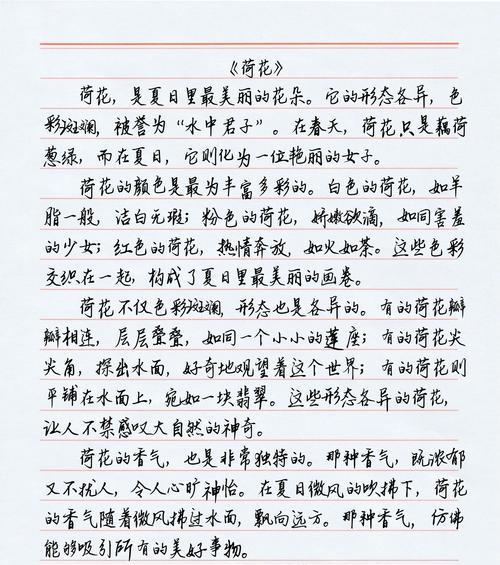 《荷花》
荷花，是夏日里最美丽的花朵。它的形态各异，色
彩斑斓，被誉为“水中君子”。在春天，荷花只是藕荷
葱绿，而在夏日，它则化为一位艳丽的女子。
荷花的颜色是最为丰富多彩的。白色的荷花，如羊
脂一般，洁白无瑕；粉色的荷花，娇嫩欲滴，如同害羞
的少女；红色的荷花，热情奔放，如火如荼。这些色彩
交织在一起，构成了夏日里最美丽的画卷。
荷花不仅色彩斑斓，形态也是各异的。有的荷花瓣
瓣相连，层层叠叠，如同一个小小的莲座；有的荷花尖
尖角，探出水面，好奇地观望着这个世界；有的荷花则
平铺在水面上，宛如一块翡翠。这些形态各异的荷花，
让人不禁感叹大自然的神奇。
荷花的香气，也是非常独特的。那种香气，既浓郁
又不扰人，令人心旷神怡。在夏日微风的吹拂下，荷花
的香气随着微风拂过水面，飘向远方。那种香气，仿佛
能够吸引所有的美好事物。